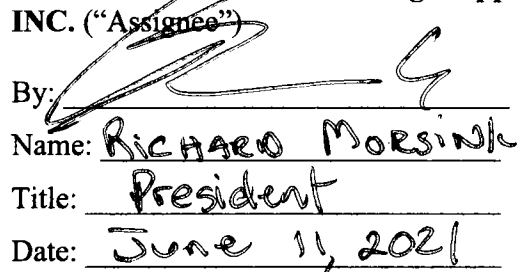 INC. ("Assignee")
By:
Name: RICHARD MORSINK
Title: President
Date: June 11, 2021